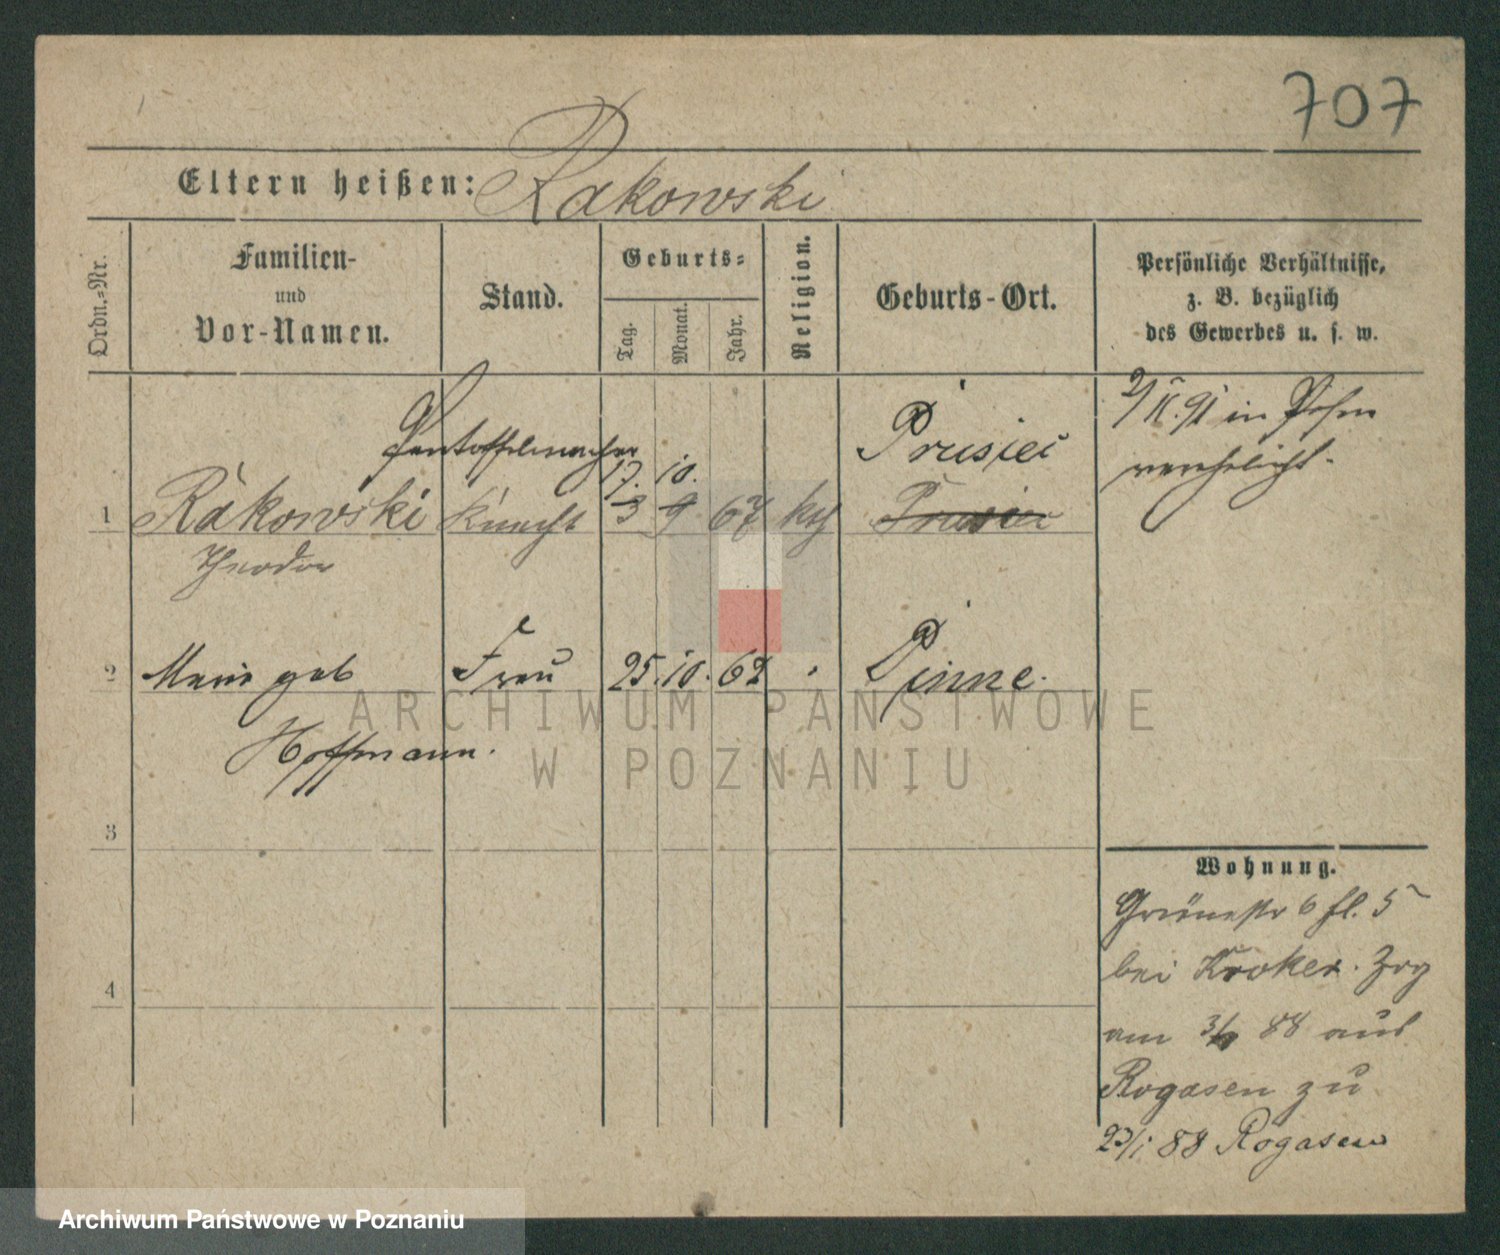 707
Eltern heißen: Rakowski
Ordn.-Nr.
Familien-
und
Vor-Namen.
Stand.
Geburts-
Tag.
Monat.
Jahr.
Religion.
Geburts-Ort.
Persönliche Verhältnisse,
z. B. bezüglich
des Gewerbes u. s. w.
Pantoffelmacher
17. 10.
Prusiec
in Posen
verehelicht.
1 Rakowski Knecht 3 9 67 kth Prusiec
Theodor
2 Marie geb Frau 25. 10. 62 Pinne.
Hoffmann.
3
4
Wohnung.
Grünestr 6 fl. 5
bei Kroker. Zzg
am 88 aus
Rogasen zu
23/1 88 Rogasen
ARCHIWUM PAŃSTWOWE
W POZNANIU
Archiwum Państwowe w Poznaniu